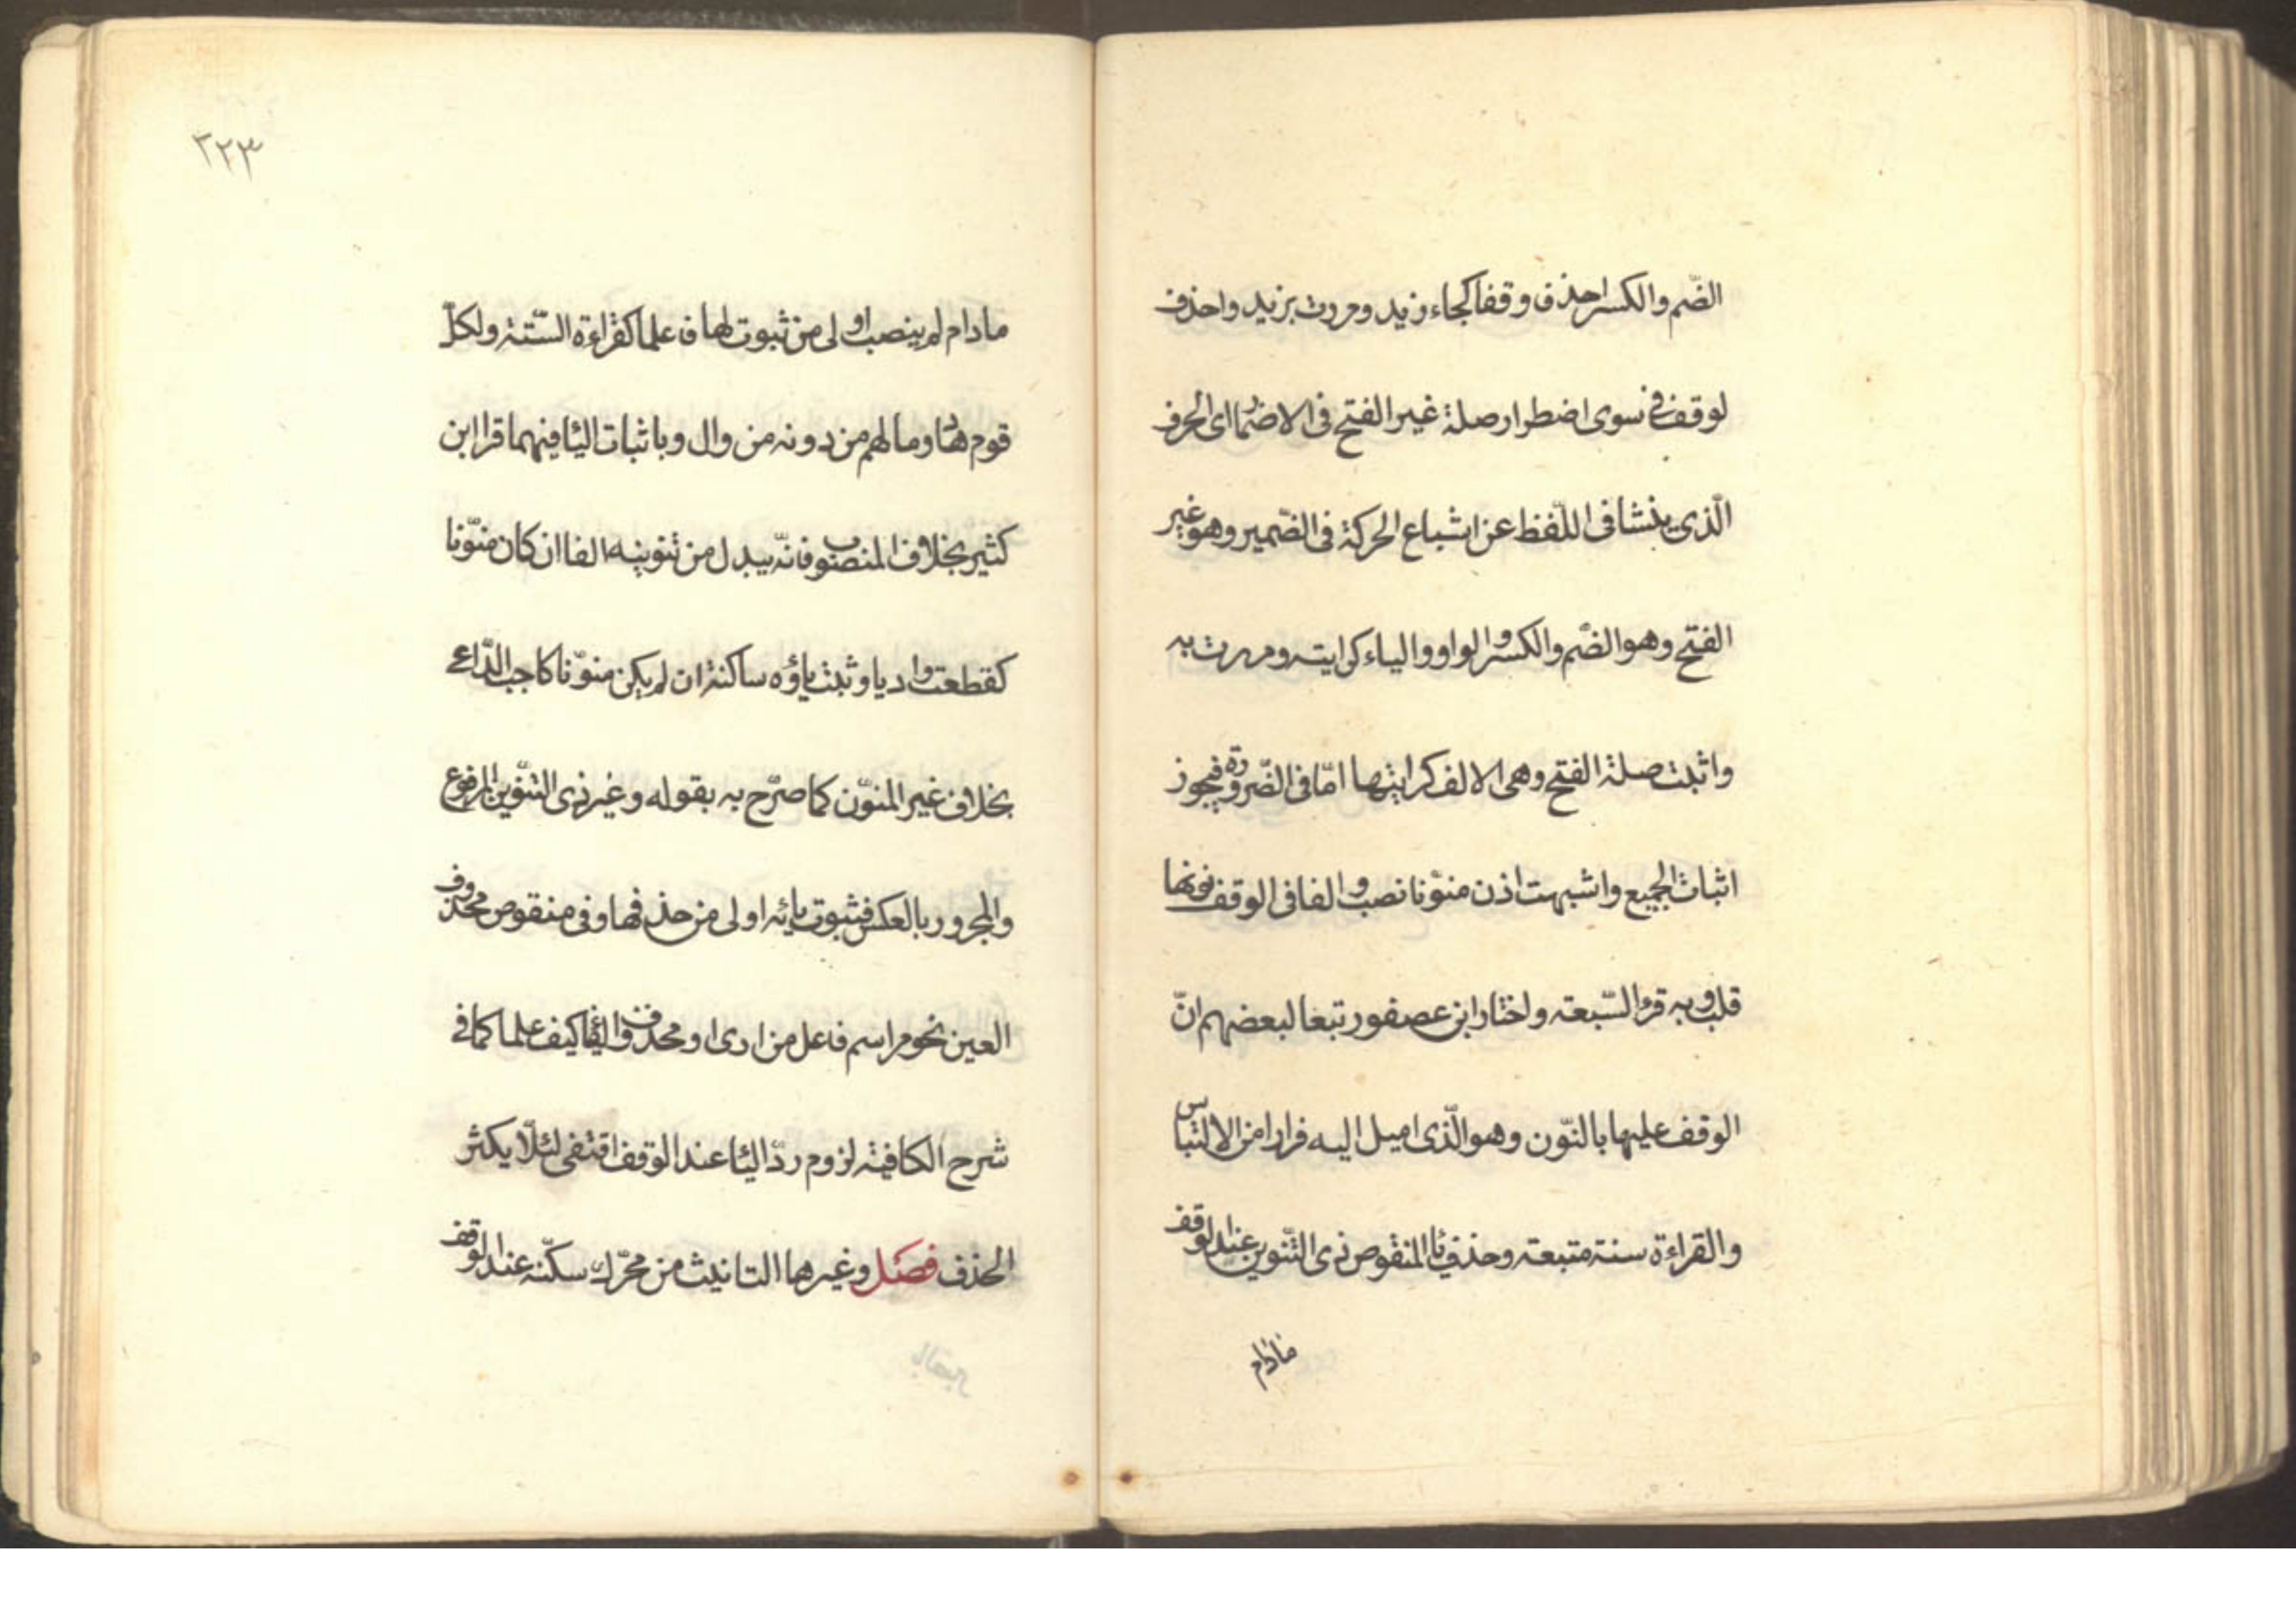 الضّم والكسر احذف وقفا كجاء زيد ومررت بزيد واحذف
لوقف فى سوى اضطرار صلة غير الفتح فى الاضمار اى الحرف
الّذى ينشا فى اللّفظ عن اشباع الحركة فى الضّمير وهو غير
الفتح وهو الضّم والكسر والواو والياء كرايته ومررت به
واثبت صلة الفتح وهى الالف كرايتها امّا فى الضّرورة فيجوز
اثبات الجميع واشبهت اذن منوّنا نصب والفا فى الوقف نونها
قلب وبه قرا السّبعة واختار ابن عصفور تبعا لبعضهم انّ
الوقف عليها بالنّون وهو الّذى اميل اليه فرارا من الالتباس
والقراءة سنة متبعة وحذف يا المنقوص ذى التّنوين عند الوقف
مادام
٣٢٣
مادام لم ينصب اولى من ثبوت لها فاعلما كقراءة السّتة ولكلّ
قوم هاد وما لهم من دونه من وال وباثبات اليا فيهما قرا ابن
كثير بخلاف المنصوب فانّه يبدل من تنوينه الفا ان كان منوّنا
كقطعت واديا وثبت ياؤه ساكنة ان لم يكن منوّنا كاجب الدّاعى
بخلاف غير المنوّن كما صرّح به بقوله وغير ذى التّنوين المرفوع
والمجرور بالعكس فثبوت يائه اولى من حذفها وفى منقوص محذوف
العين نحو مر اسم فاعل من ارى او محذوف الفا كيف علما كما فى
شرح الكافية لزوم ردّ اليا عند الوقف اقتفى لئلّا يكثر
الحذف فصل وغير ها التانيث من محرّك سكّنه عند الوقف